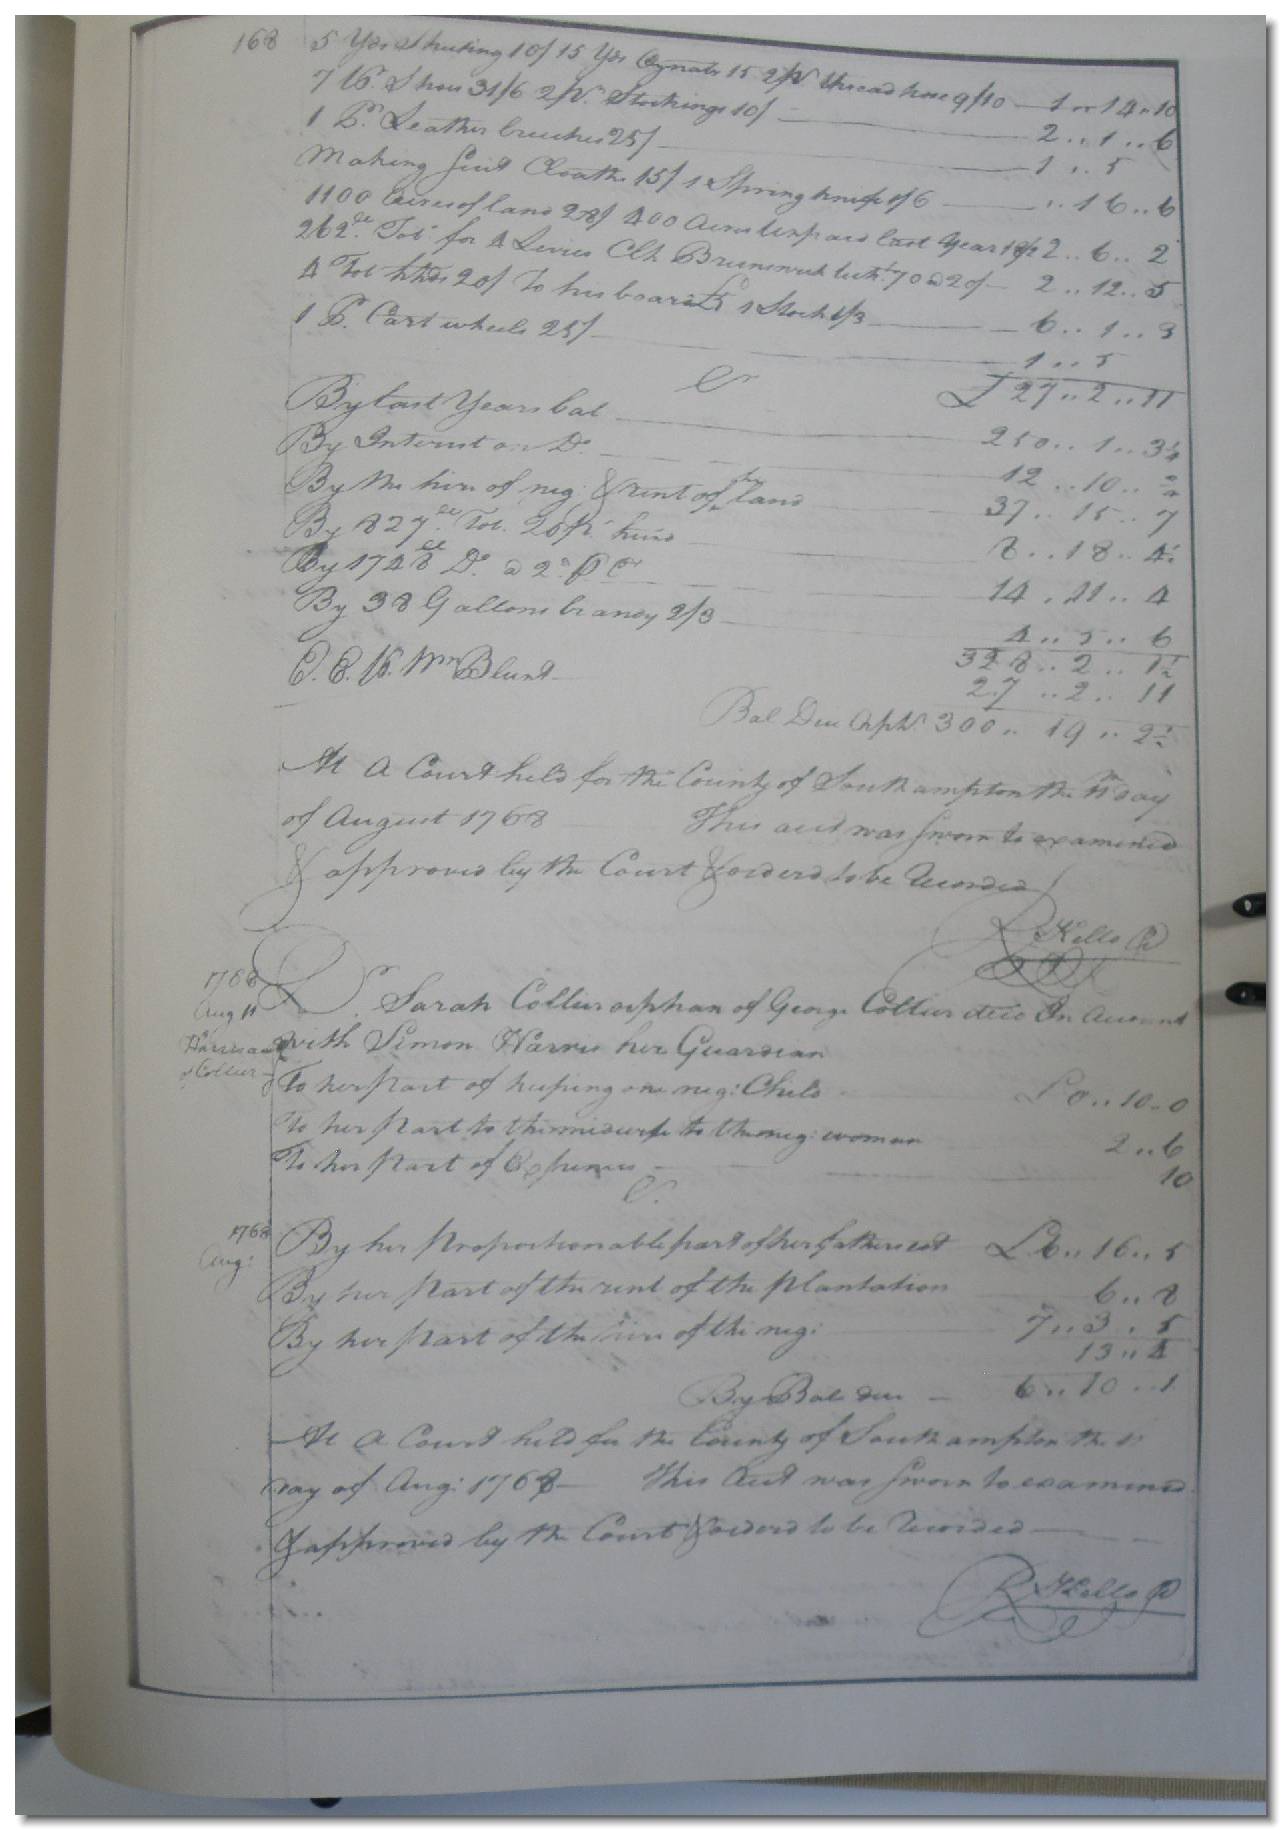 168
5 Yds Sheeting 10/ 15 Yds 15 2 pr. thread hose 9/10 — 1 .. 14 .. 10
7 Pr. Shoes 31/6 2 pr. Stockings 10/ — 2 .. 1 .. 6
1 Pr. Leather breeches 25/ — 1 .. 5
Making Suit Cloaths 15/ 1 Spring knife 1/6 — .. 16 .. 6
1100 Acres of land 400 Acres last Year 2 .. 6 .. 2
262 lb. Tob. for 4 Levies Clk Brunswick 70 a 20/ — 2 .. 12 .. 5
4 Tob hhds 20/ To his board £5 1 Stock 1/3 — 6 .. 1 .. 3
1 Pr. Cart wheels 25/ — 1 .. 5
Cr £ 27 .. 2 .. 11
By last Years bal — 250 .. 1 .. 3 1/4
By Interest on Do. — 12 .. 10 ..
By the hire of neg: & rent of his land 37 .. 15 .. 7
By 827 lb Tob. 20 Pr. hund — 8 .. 18 .. 4
By 1748 lb Do. a 2d. P C — 14 .. 11 .. 4
By 38 Gallons brandy 2/3 — 4 .. 5 .. 6
328 .. 2 .. 1 1/2
E. E. Pr. Wm Blunt —
27 .. 2 .. 11
Bal Due Orph. 300 .. 19 .. 2 1/2
At a Court held for the County of Southampton the 11th day
of August 1768 This acct was sworn to examined
& approved by the Court & orderd to be Recorded
R Kello
1768
Aug 11
Dr. Sarah Collier orphan of George Collier decd In Account
Harris acct
of Collier
with Simon Harris her Guardian
To her part of keeping one neg: Child — £ 0 .. 10 .. 0
To her part to the midwife to the neg: woman 2 .. 6
To her Part of Expences — 10
Cr.
1768
Aug:
By her proportionable part of her fathers est £6 .. 16 .. 5
By her part of the rent of the plantation 6 .. 8
By her part of the hire of the neg: 7 .. 3 . 5
13 .. 4
By Bal due — 6 .. 10 .. 1
At a Court held for the County of Southampton the 11
day of Aug: 1768 — This Acct was sworn to examined
& approved by the Court & orderd to be Recorded —
R Kello